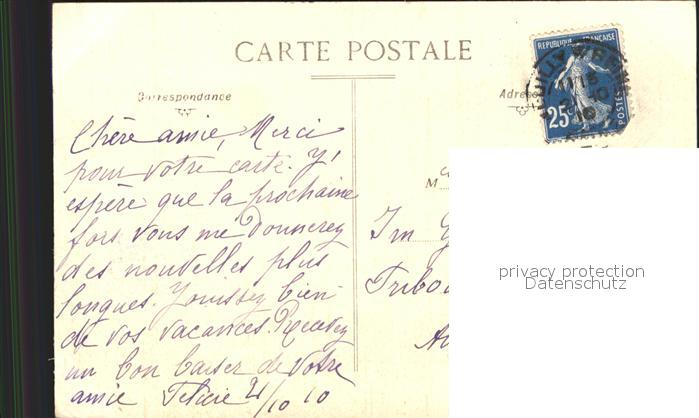 CARTE POSTALE
Correspondance
Adres
REPUBLIQUE FRANÇAISE
POSTES
25c
Chère amie, Merci
pour votre carte. J'
espère que la prochaine
fois vous me donnerez
des nouvelles plus
longues. Jouissez bien
de vos vacances. Recevez
un bon baiser de votre
amie Félicie 21/10 10
M
Im
Tribo
privacy protection
Datenschutz